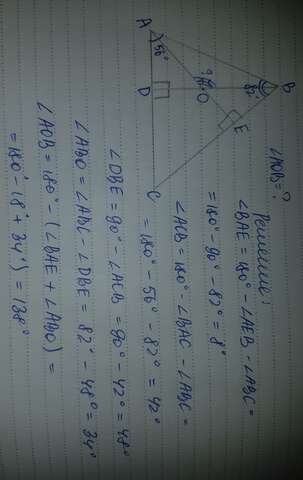 A
B
56°
82°
D
?
O
E
C
∠AOB=?
Решение:
∠BAE = 180° - ∠AEB - ∠ABC =
= 180° - 90° - 82° = 8°
∠ACB = 180° - ∠BAC - ∠ABC =
= 180° - 56° - 82° = 42°
∠DBE = 90° - ∠ACB = 90° - 42° = 48°
∠ABO = ∠ABC - ∠DBE = 82° - 48° = 34°
∠AOB = 180° - (∠BAE + ∠ABO) =
= 180° - (8° + 34°) = 138°